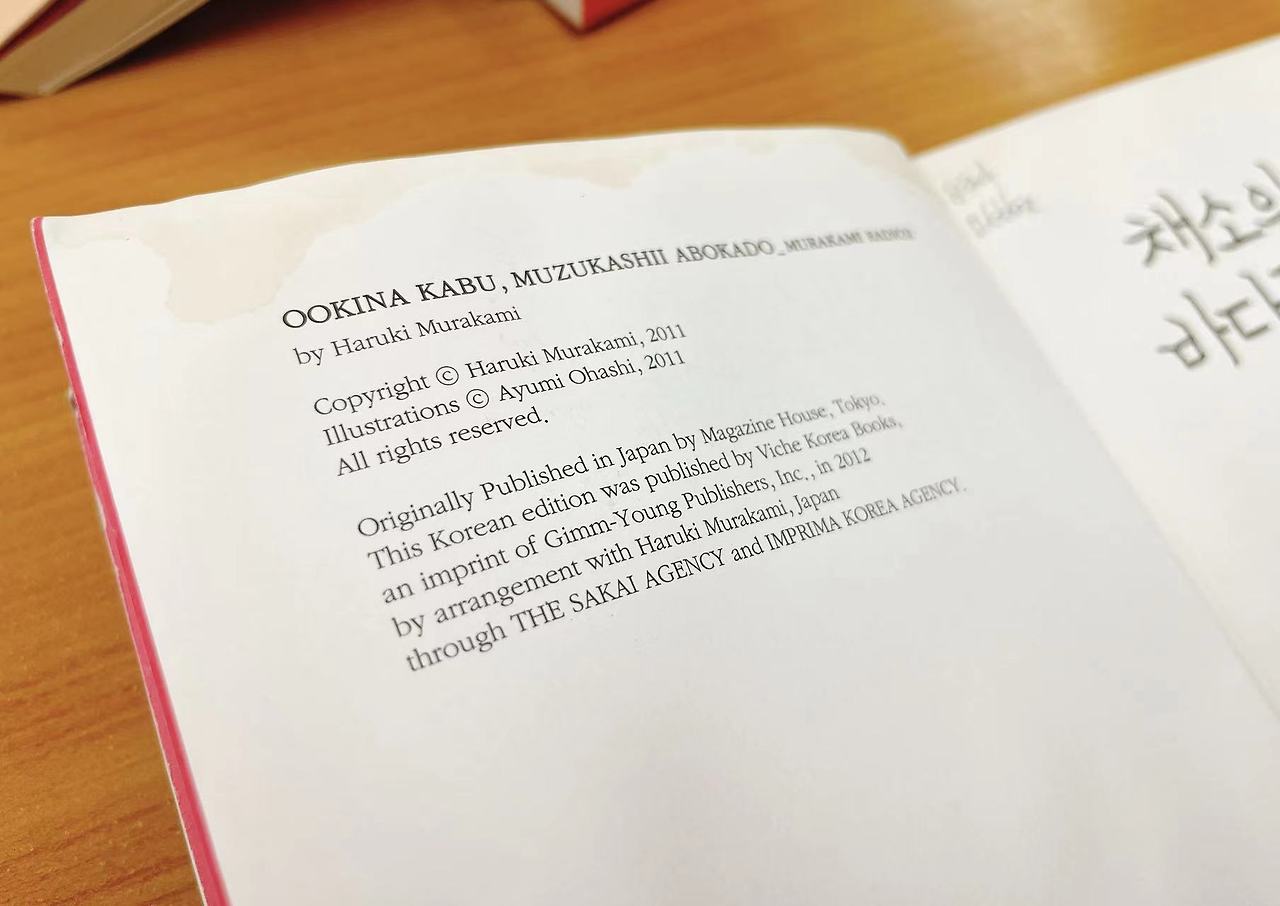 OOKINA KABU, MUZUKASHII ABOKADO_MURAKAMI RADIO2
by Haruki Murakami
Copyright ⓒ Haruki Murakami, 2011
Illustrations ⓒ Ayumi Ohashi, 2011
All rights reserved.
Originally Published in Japan by Magazine House, Tokyo.
This Korean edition was published by Viche Korea Books,
an imprint of Gimm-Young Publishers, Inc., in 2012
by arrangement with Haruki Murakami, Japan
through THE SAKAI AGENCY and IMPRIMA KOREA AGENCY.
채소의
바다